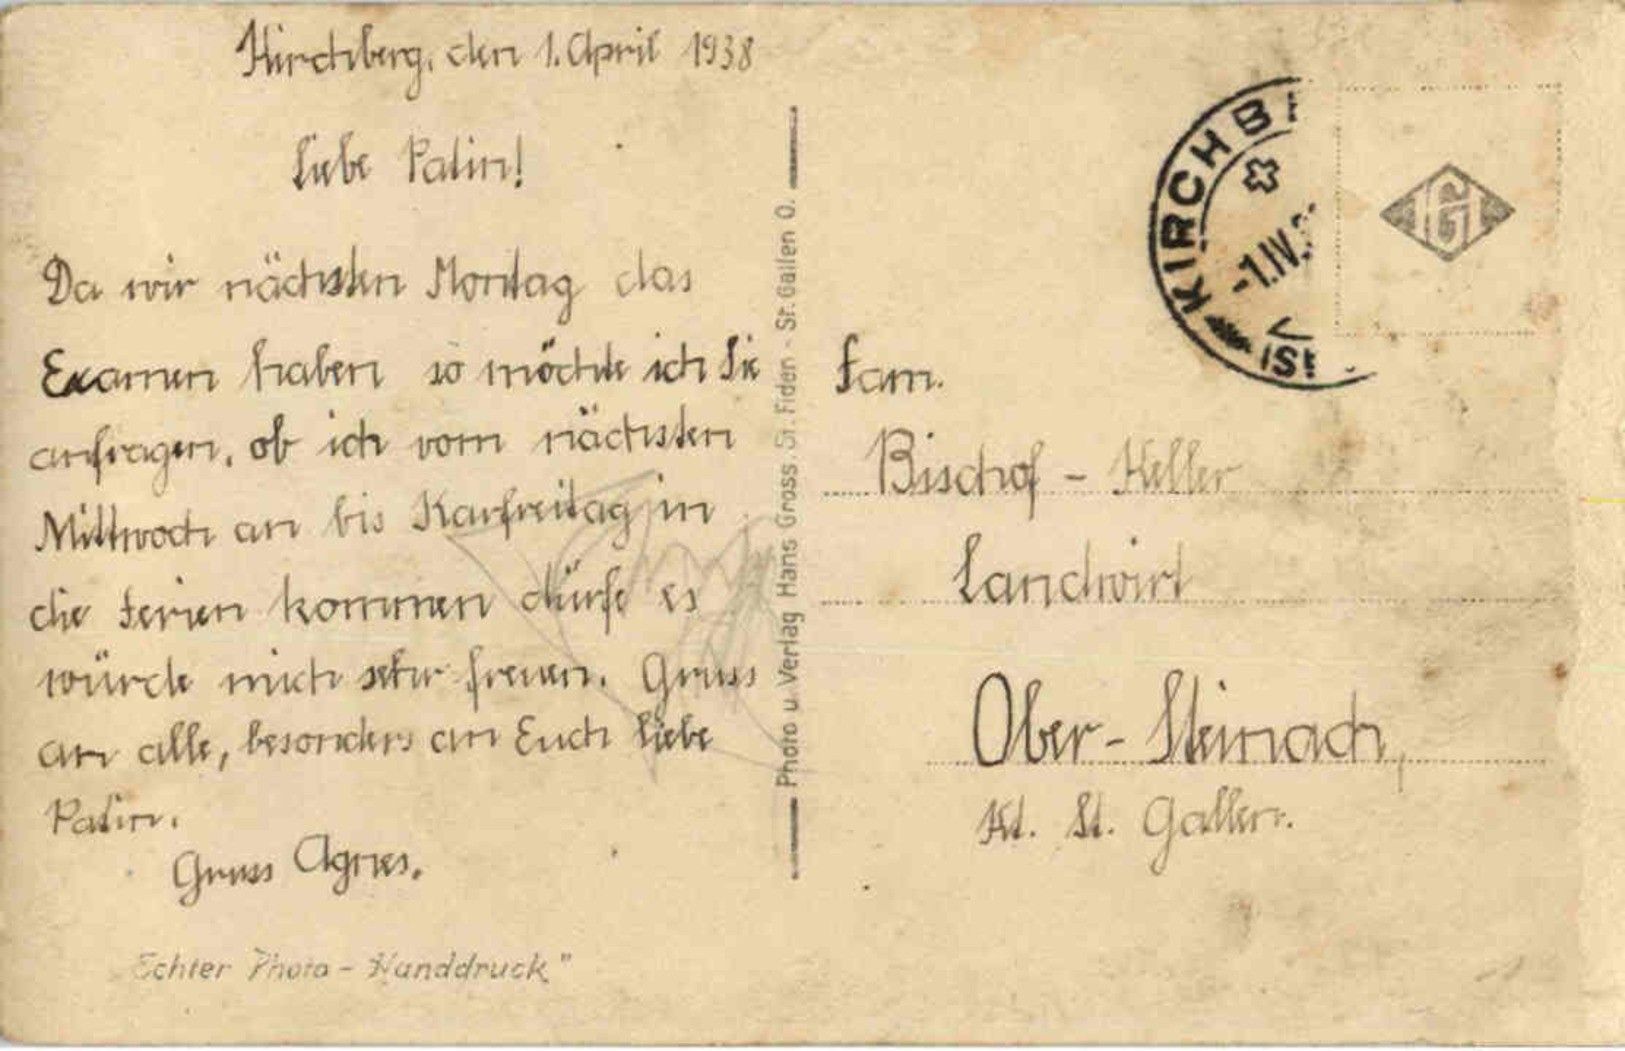 Kirchberg, den 1. April 1938
Liebe Patin!
Da wir nächsten Montag das
Examen haben so möchte ich Sie
anfragen, ob ich vom nächsten
Mittwoch an bis Karfreitag in
die Ferien kommen dürfe es
würde mich sehr freuen. Gruss
an alle, besonders an Euch liebe
Patin.
Gruss Agnes.
Echter Photo - Handdruck"
Photo u. Verlag Hans Gross, St. Fiden - St. Gallen O.
KIRCHB
-1.IV.3
(S
G
Fam.
Bischof - Keller
Landwirt
Ober - Steinach,
Kt. St. Gallen.